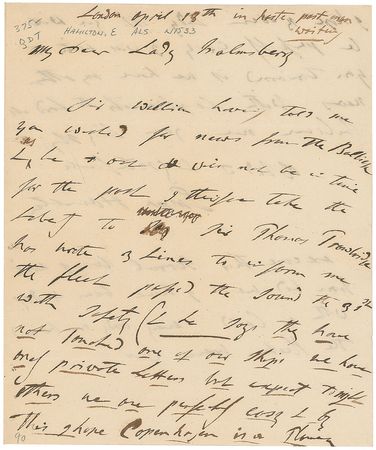 London April 13th in haste post now
waiting
3750
BDT
HAMILTON, E ALS
My Dear Lady Malmsbery
Sir William having told me
you wished for news from the Baltick
& he is out & will not be in time
for the post I therefore take the
liberty to Sir Thomas Trowbridge
has wrote 3 Lines to inform me
the fleet passed the Sound the 30th
with Safety (& he says they have
not Touched one of our Ships we have
only private Letters but expect to night
others we are perfectly easy & by
This I hope Copenhagen is a
90